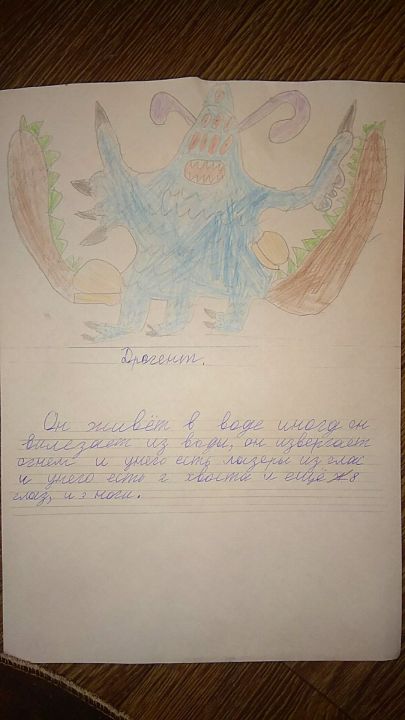 Драгент.
Он живёт в воде иногда он
вилезает из воды, он извергает
огнем и унего есть лазеры из глас
и унего есть 2 хвоста и ещё 8
глаз, и 3 ноги.